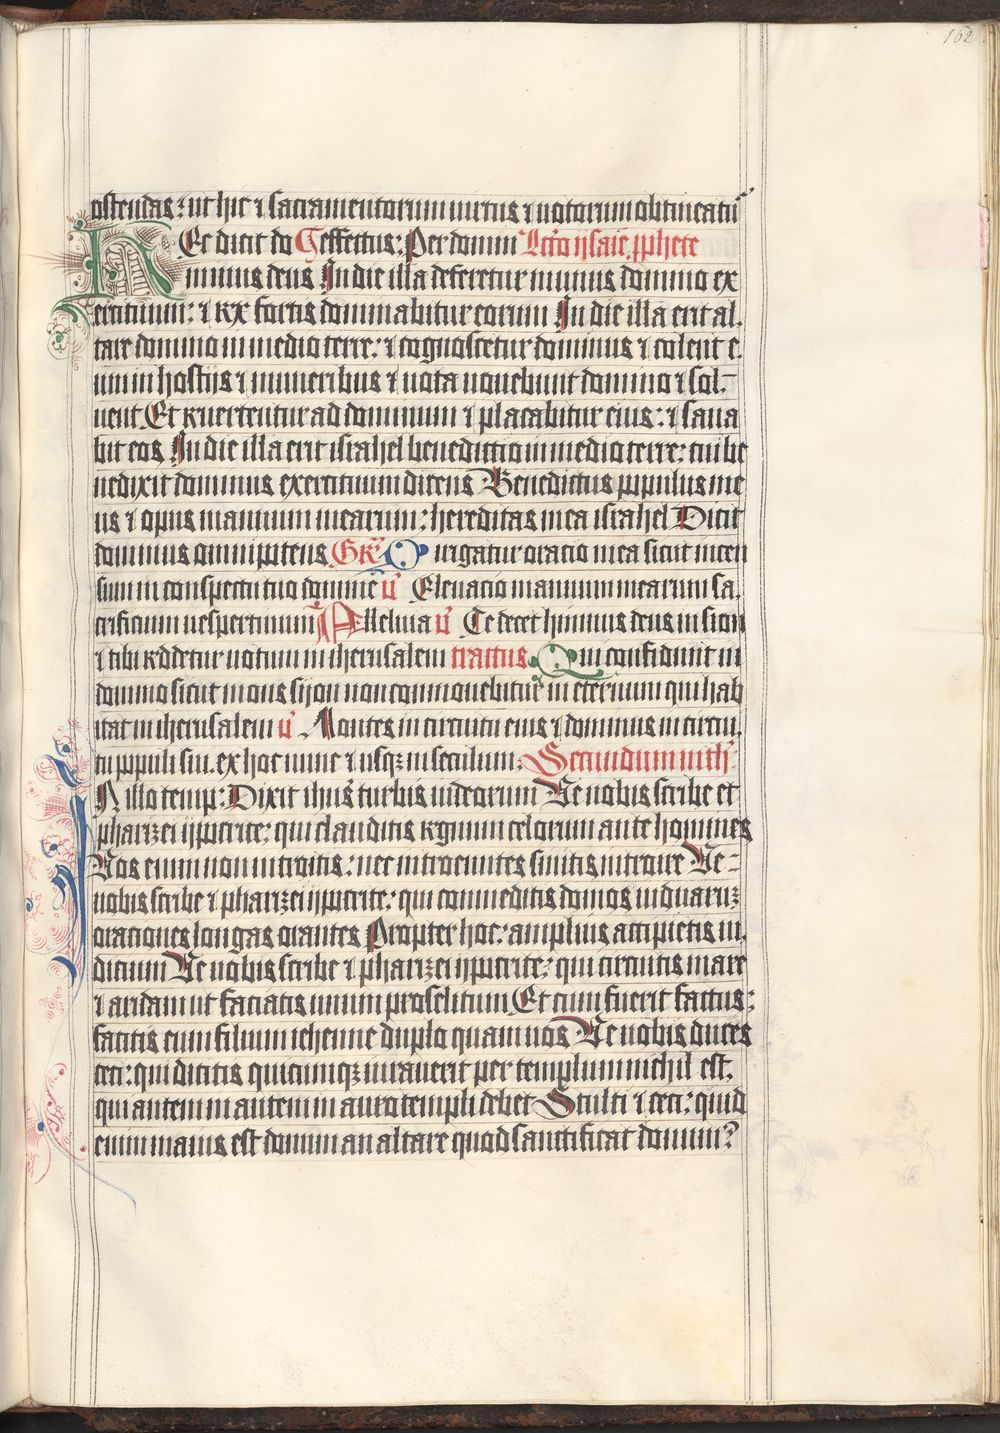 162
ostendas: ut hic ⁊ sacramentorum uirtus ⁊ uotorum obtineatur
Et dicit do Ceffectus: Per domin̄ Lcō ysaie pphete
H mimus deus In die illa deferetur munus domino ex
ercituum: ⁊ rex fortis dominabitur eorum In die illa erit al-
tare domino in medio terre: ⁊ cognoscetur dominus ⁊ colent e-
um in hostijs ⁊ muneribus ⁊ uota uouebunt domino ⁊ sol-
uent Et reuertentur ad dominum ⁊ placabitur eius: ⁊ sana
bit eos In die illa erit israhel benedictio in medio terre: cui be
nedixit dominus exercituum dicens Benedictus populus me
us ⁊ opus manuum mearum: hereditas mea israhel Dicit
dominus omnipotens Gr̄ Dirigatur oratio mea sicut incen
sum in conspectu tuo domine v̄ Eleuacio manuum mearum sa-
crificium uespertinum Alleluia v̄ Te decet himnus deus in sion
⁊ tibi reddetur uotum in iherusalem tractus Qui confidunt in
domino sicut mons sijon non commouebitur in eternum qui hab
itat in iherusalem v̄ Montes in circuitu eius ⁊ dominus in circu-
tu populi sui. ex hoc nunc ⁊ usq; in seculum: Secundum mth̄
In illo temp: Dixit ihūs turbis iudeorum Ve uobis scribe et
pharizei ypocrite: qui clauditis regnum celorum ante homines
Vos enim non intratis: nec introeuntes sinitis intrare Ve-
uobis scribe ⁊ pharizei ypocrite: qui commeditis domos uiduarum
orationes longas orantes Propter hoc: amplius accipietis iu-
dicium Ve uobis scribe ⁊ pharizei ypocrite: qui circuitis mare
⁊ aridam ut faciatis unum proselitum Et cum fuerit factus:
facitis eum filium iehenne duplo quam uos Ve uobis duces
ceci: qui dicitis quicumq; iurauerit per templum nichil est.
qui autem in autem in auro templi debet Stulti ⁊ ceci: quid
enim maius est donum an altare quod sanctificat donum?